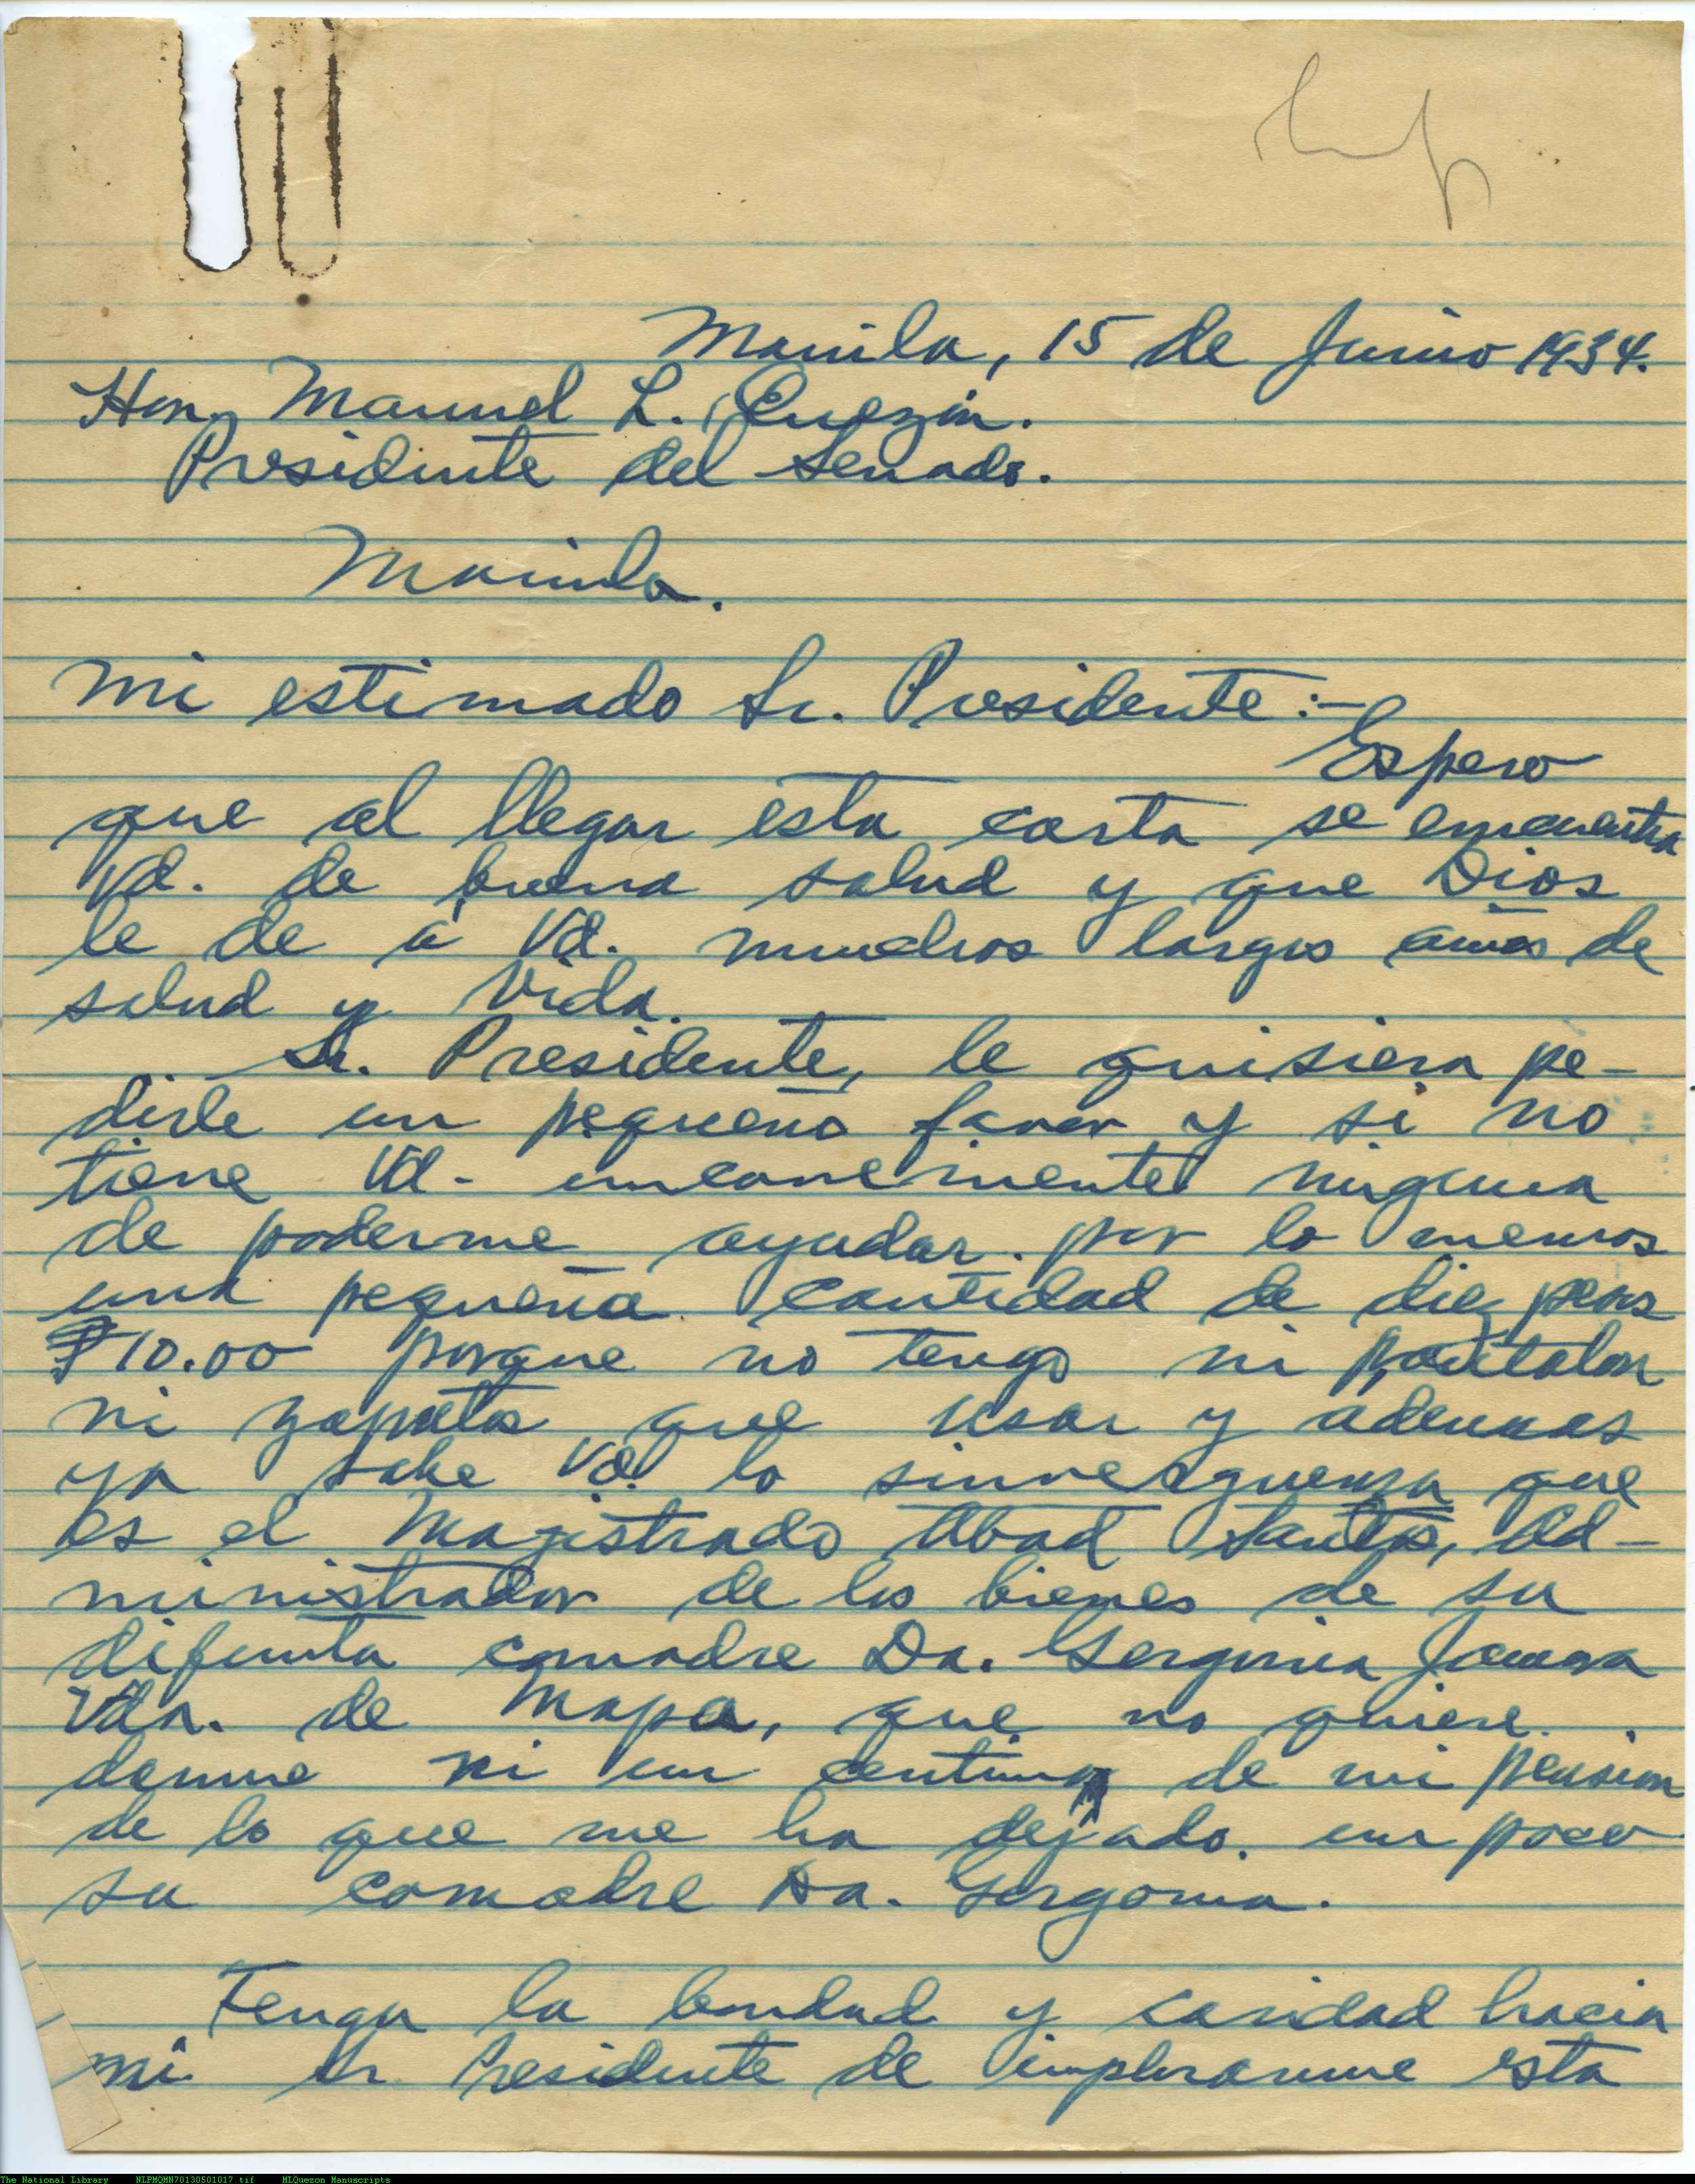 Manila, 15 de Junio 1934.
Hon. Manuel L. Quezon.
Presidente del Senado.
Manila.
Mi estimado Sr. Presidente:-
Espero
que al llegar esta carta se encuentra
Vd. de buena salud y que Dios
le de á Vd. muchos largos años de
salud y vida.
Sr. Presidente, le quisiera pe-
dirle un pequeño favor y si no
tiene Vd. inconveniente ninguna
de poderme ayudar por lo menos
una pequeña cantidad de diez pesos
₱10.00 porque no tengo ni pantalon
ni zapatos que usar y ademas
ya sabe Vd. lo sinverguenza que
es el Magistrado Abad Santos, Ad-
ministrador de los bienes de su
difunta comadre Da. Gorgonia
Vda. de Mapa, que no quiere
darme ni un centimo de mi pension
de lo que me ha dejado un poco
su comadre Da. Gorgonia.
Tenga la bondad y caridad hacia
mi Sr Presidente de implorarme esta
The National Library NLPMQMN70130501017.tif MLQuezon Manuscripts